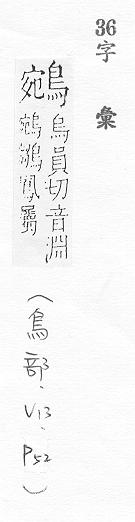 36 字彙
鵷 烏員切音淵
鵷鶵鳳屬
(鳥部.V13.P52)